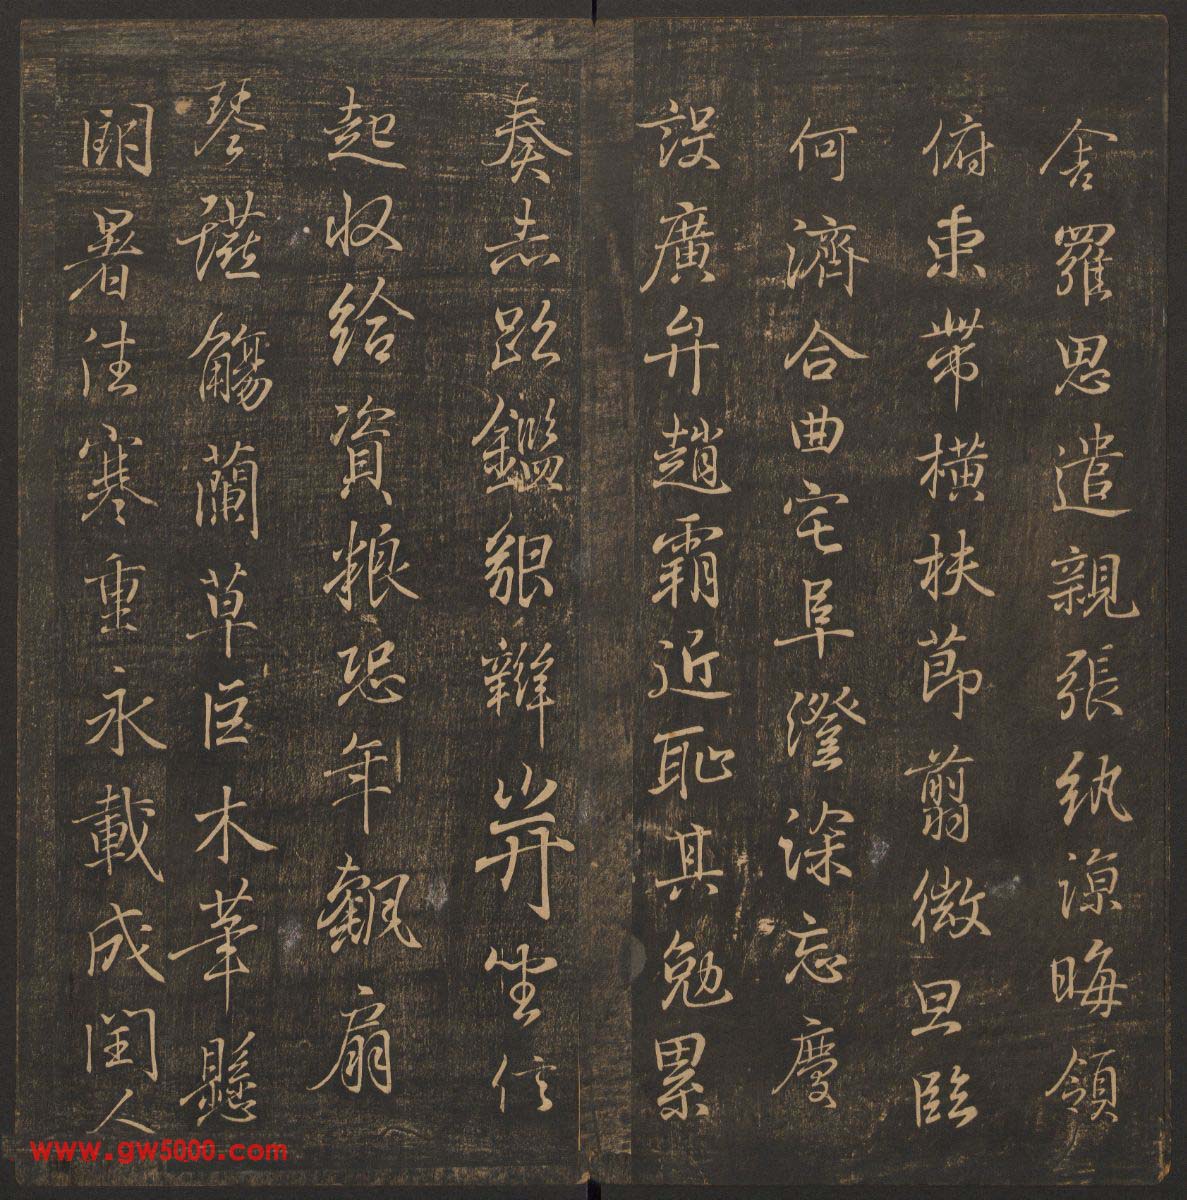 舍羅思遣親張紈涼晦領
俯束帶橫扶節翦微旦臨
何濟合曲宅阜澄深忘慶
設廣弁趙霸近恥其勉累
奏志鑑貌辨坐信
起收給資粮恐年觀扇
琴觴蘭草臣木華懸
暑往寒重永載成閏人
www.gw5000.com